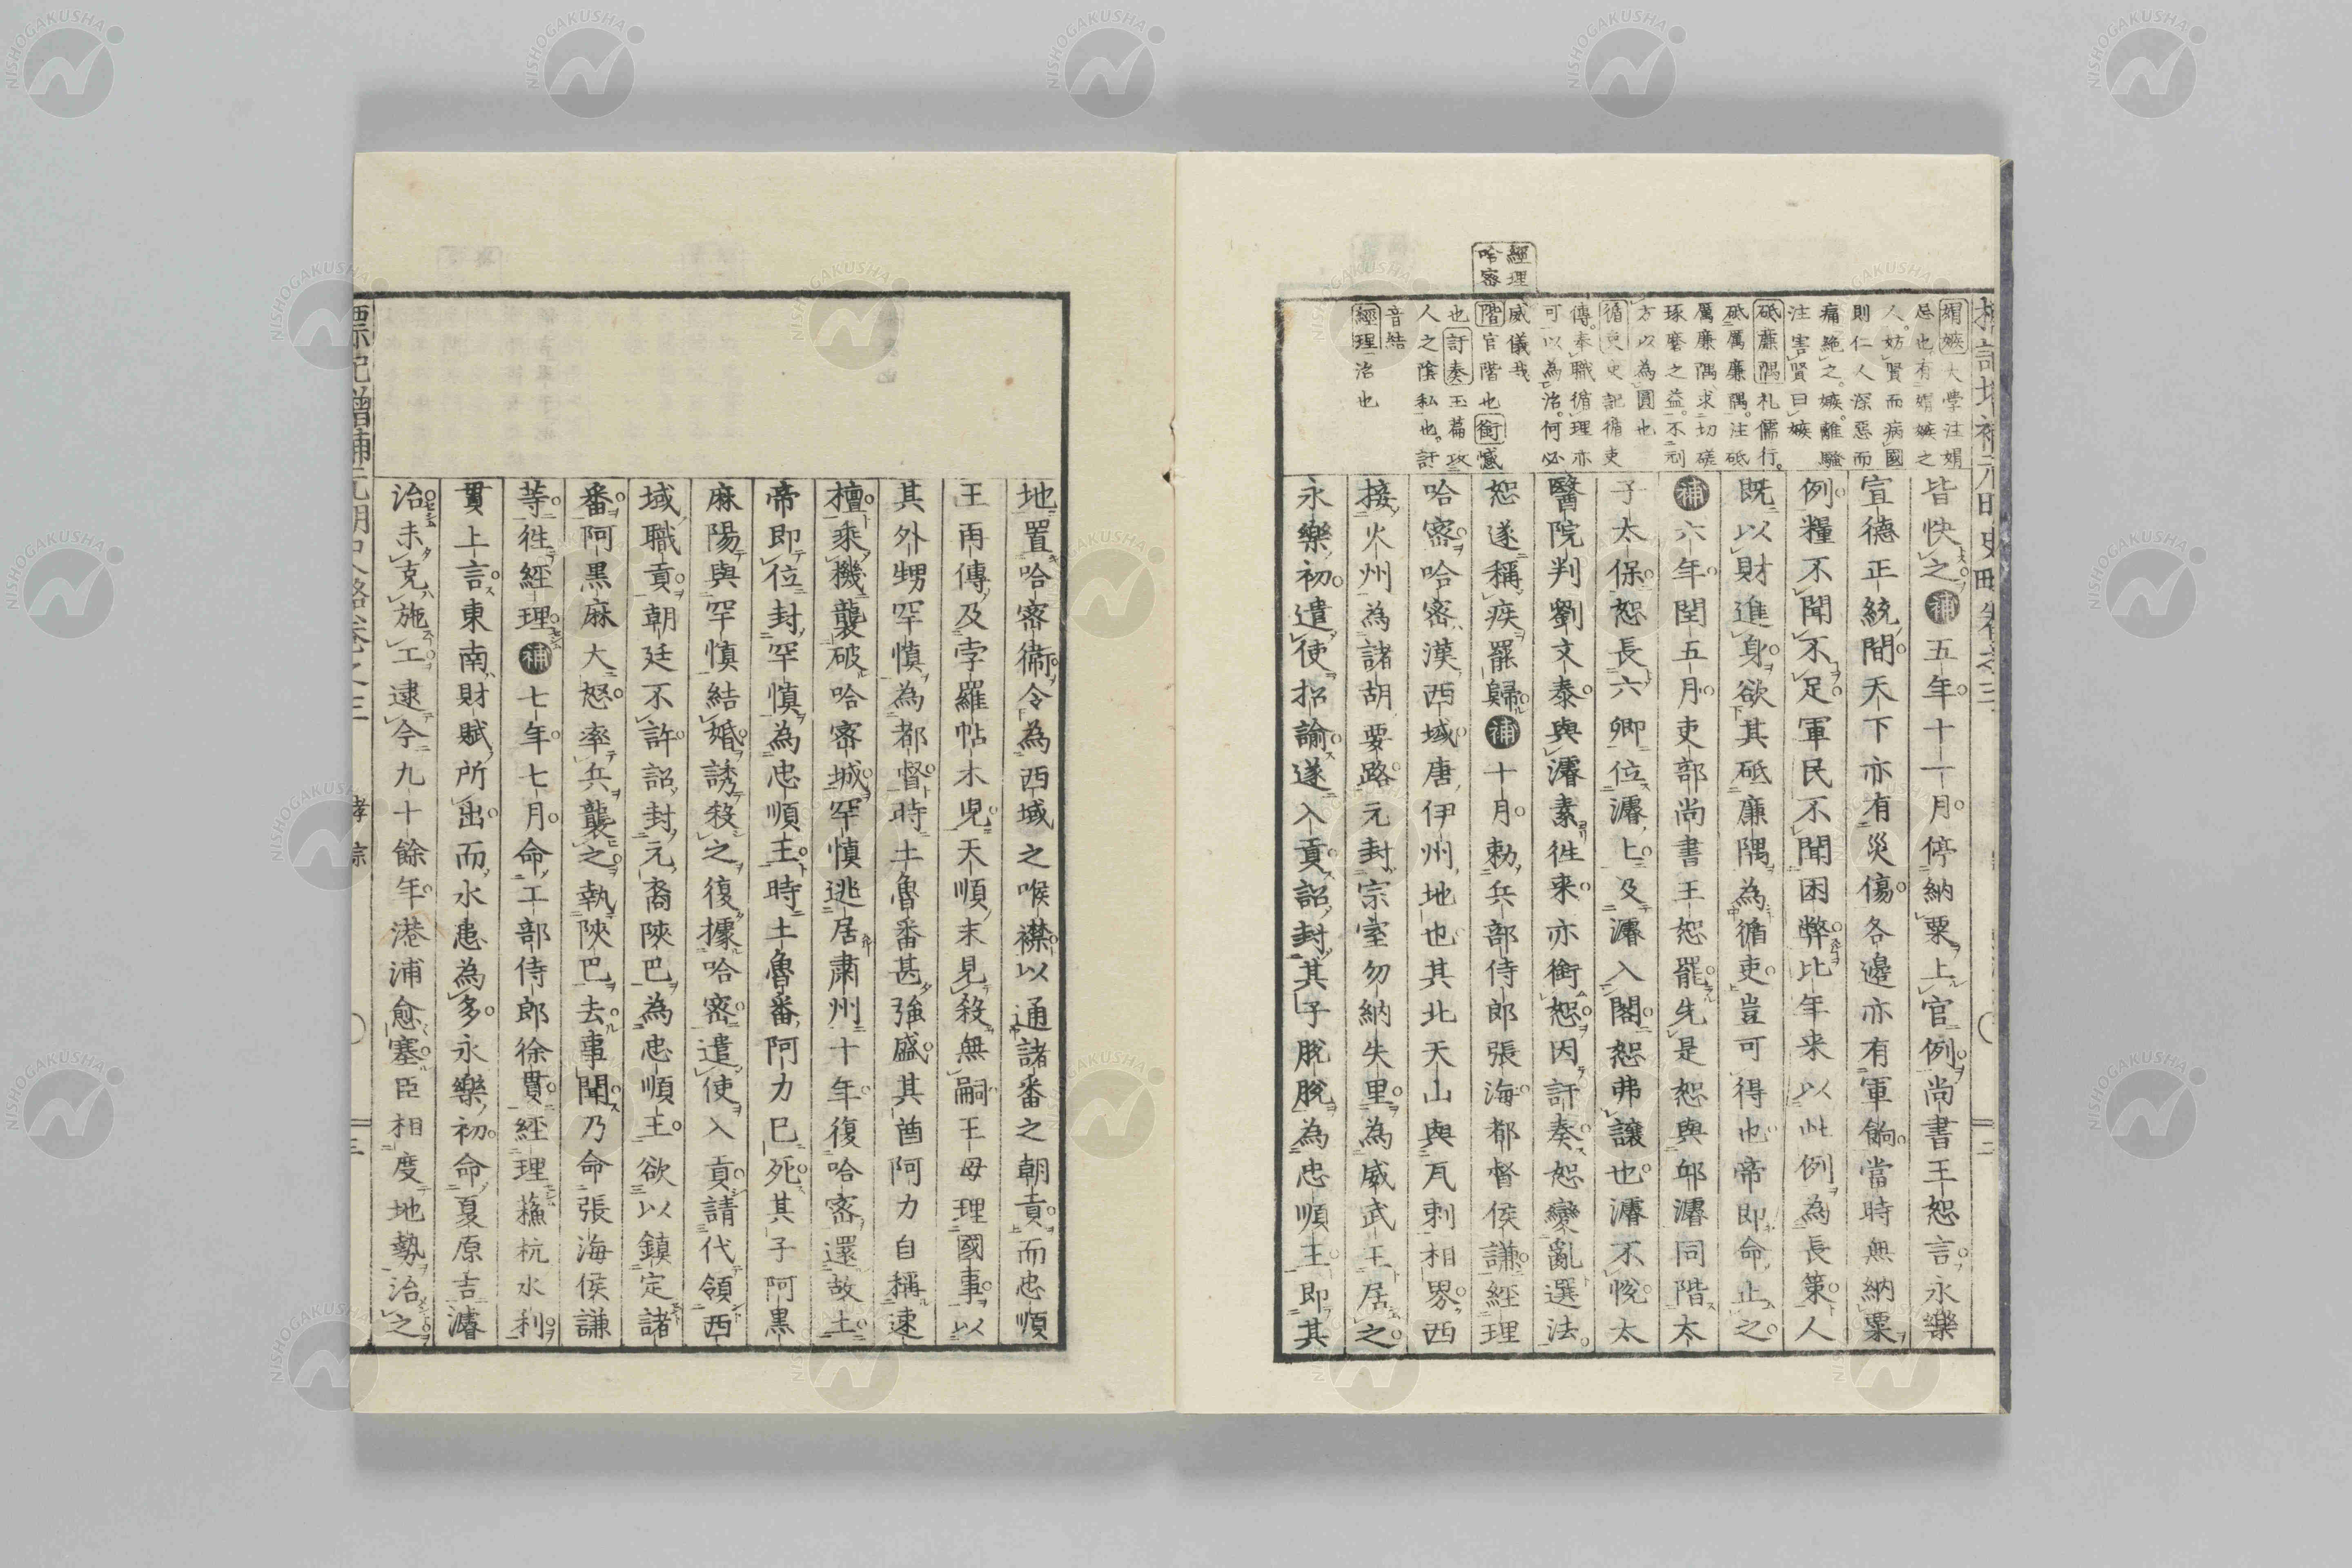 經理
哈密
媢嫉大學注媢
忌也有媢嫉之
人妨賢而病國
則仁人深惡而
痛絶之嫉離騷
注害賢曰嫉
砥廉隅礼儒行
砥厲廉隅注砥
厲廉隅求切磋
琢磨之益不刓
方以為圓也
循吏史記循吏
傳奉職循理亦
可以為治何必
威儀哉
階官階也銜憾
也訐奏玉篇攻
人之陰私也訐
音結
經理治也
皆快之補五年十一月停納粟上官例尚書王恕言永樂
宣德正統間天下亦有災傷各邊亦有軍餉當時無納粟
例糧不聞不足軍民不聞困弊比年来以此例為長策人
既以財進身欲其砥廉隅為循吏豈可得也帝即命止之
補六年閏五月吏部尚書王恕罷先是恕與邱濬同階太
子太保恕長六卿位濬上及濬入閣恕弗讓也濬不悅太
醫院判劉文泰與濬素徃来亦銜恕因訐奏恕變亂選法
恕遂稱疾罷歸補十月勅兵部侍郎張海都督侯謙經理
哈密哈密漢西域唐伊州地也其北天山與瓦剌相界西
接火州為諸胡要路元封宗室勿納失里為威武王居之
永樂初遣使招諭遂入貢詔封其子脫脫為忠順王即其
地置哈密衞令為西域之喉襟以通諸番之朝貢而忠順
王再傳及孛羅帖木兒天順末見殺無嗣王母理國事以
其外甥罕慎為都督時土魯番甚強盛其酋阿力自稱速
檀乘機襲破哈密城罕慎逃居肅州十年復哈密還故土
帝即位封罕慎為忠順王時土魯番阿力已死其子阿黒
麻陽與罕慎結婚誘殺之復據哈密遣使入貢請代領西
域職貢朝廷不許詔封元裔陝巴為忠順王欲以鎮定諸
番阿黒麻大怒率兵襲之執陝巴去事聞乃命張海侯謙
等徃經理補七年七月命工部侍郎徐貫經理蘓杭水利
貫上言東南財賦所出而水患為多永樂初命夏原吉濬
治未克施工逮今九十餘年港浦愈塞臣相度地勢治之
標記增補元明史略卷之三
孝宗
三
NISHOGAKUSHA